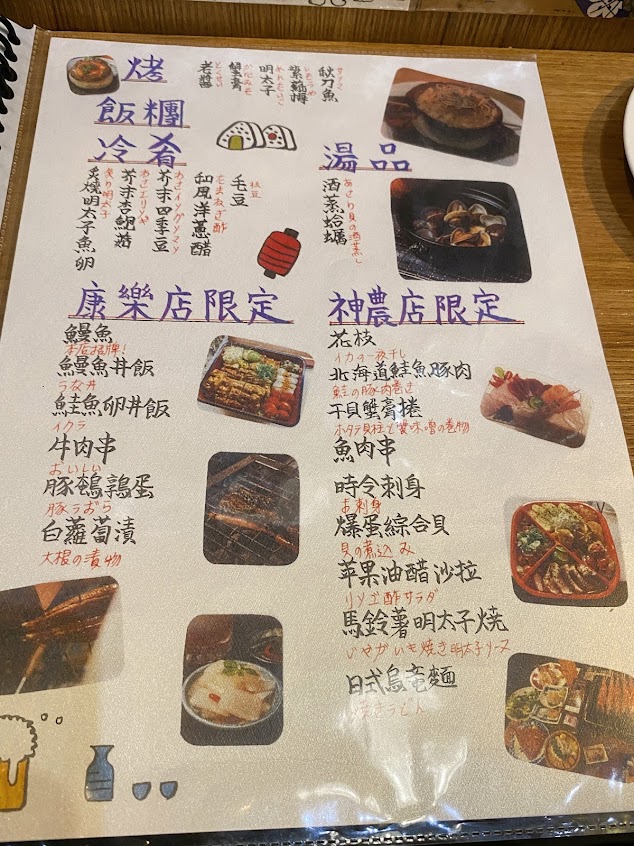 烤
飯糰
秋刀魚
サンマ
紫蘇梅
しそうめ
明太子
蟹膏
かにみそ
老醬
冷肴
毛豆
枝豆
和風洋蔥醋
たまねぎ酢
芥末四季豆
芥末杏鮑菇
わさエリンギ
炙燒明太子魚卵
炙り明太子
湯品
酒蒸蛤蠣
あさり貝の酒蒸し
康樂店限定
鰻魚
本店招牌！
鰻魚丼飯
うな丼
鮭魚卵丼飯
イクラ
牛肉串
おいしい
豚鵪鶉蛋
豚うおら
白蘿蔔漬
大根の漬物
神農店限定
花枝
イカの一夜干し
北海道鮭魚豚肉
鮭の豚肉巻き
干貝蟹膏捲
ホタテ貝柱と蟹味噌の巻物
魚肉串
時令刺身
お刺身
爆蛋綜合貝
貝の煮込み
苹果油醋沙拉
リンゴ酢サラダ
馬鈴薯明太子燒
いやがいも焼き明太子ソース
日式烏竜麵
焼きうどん